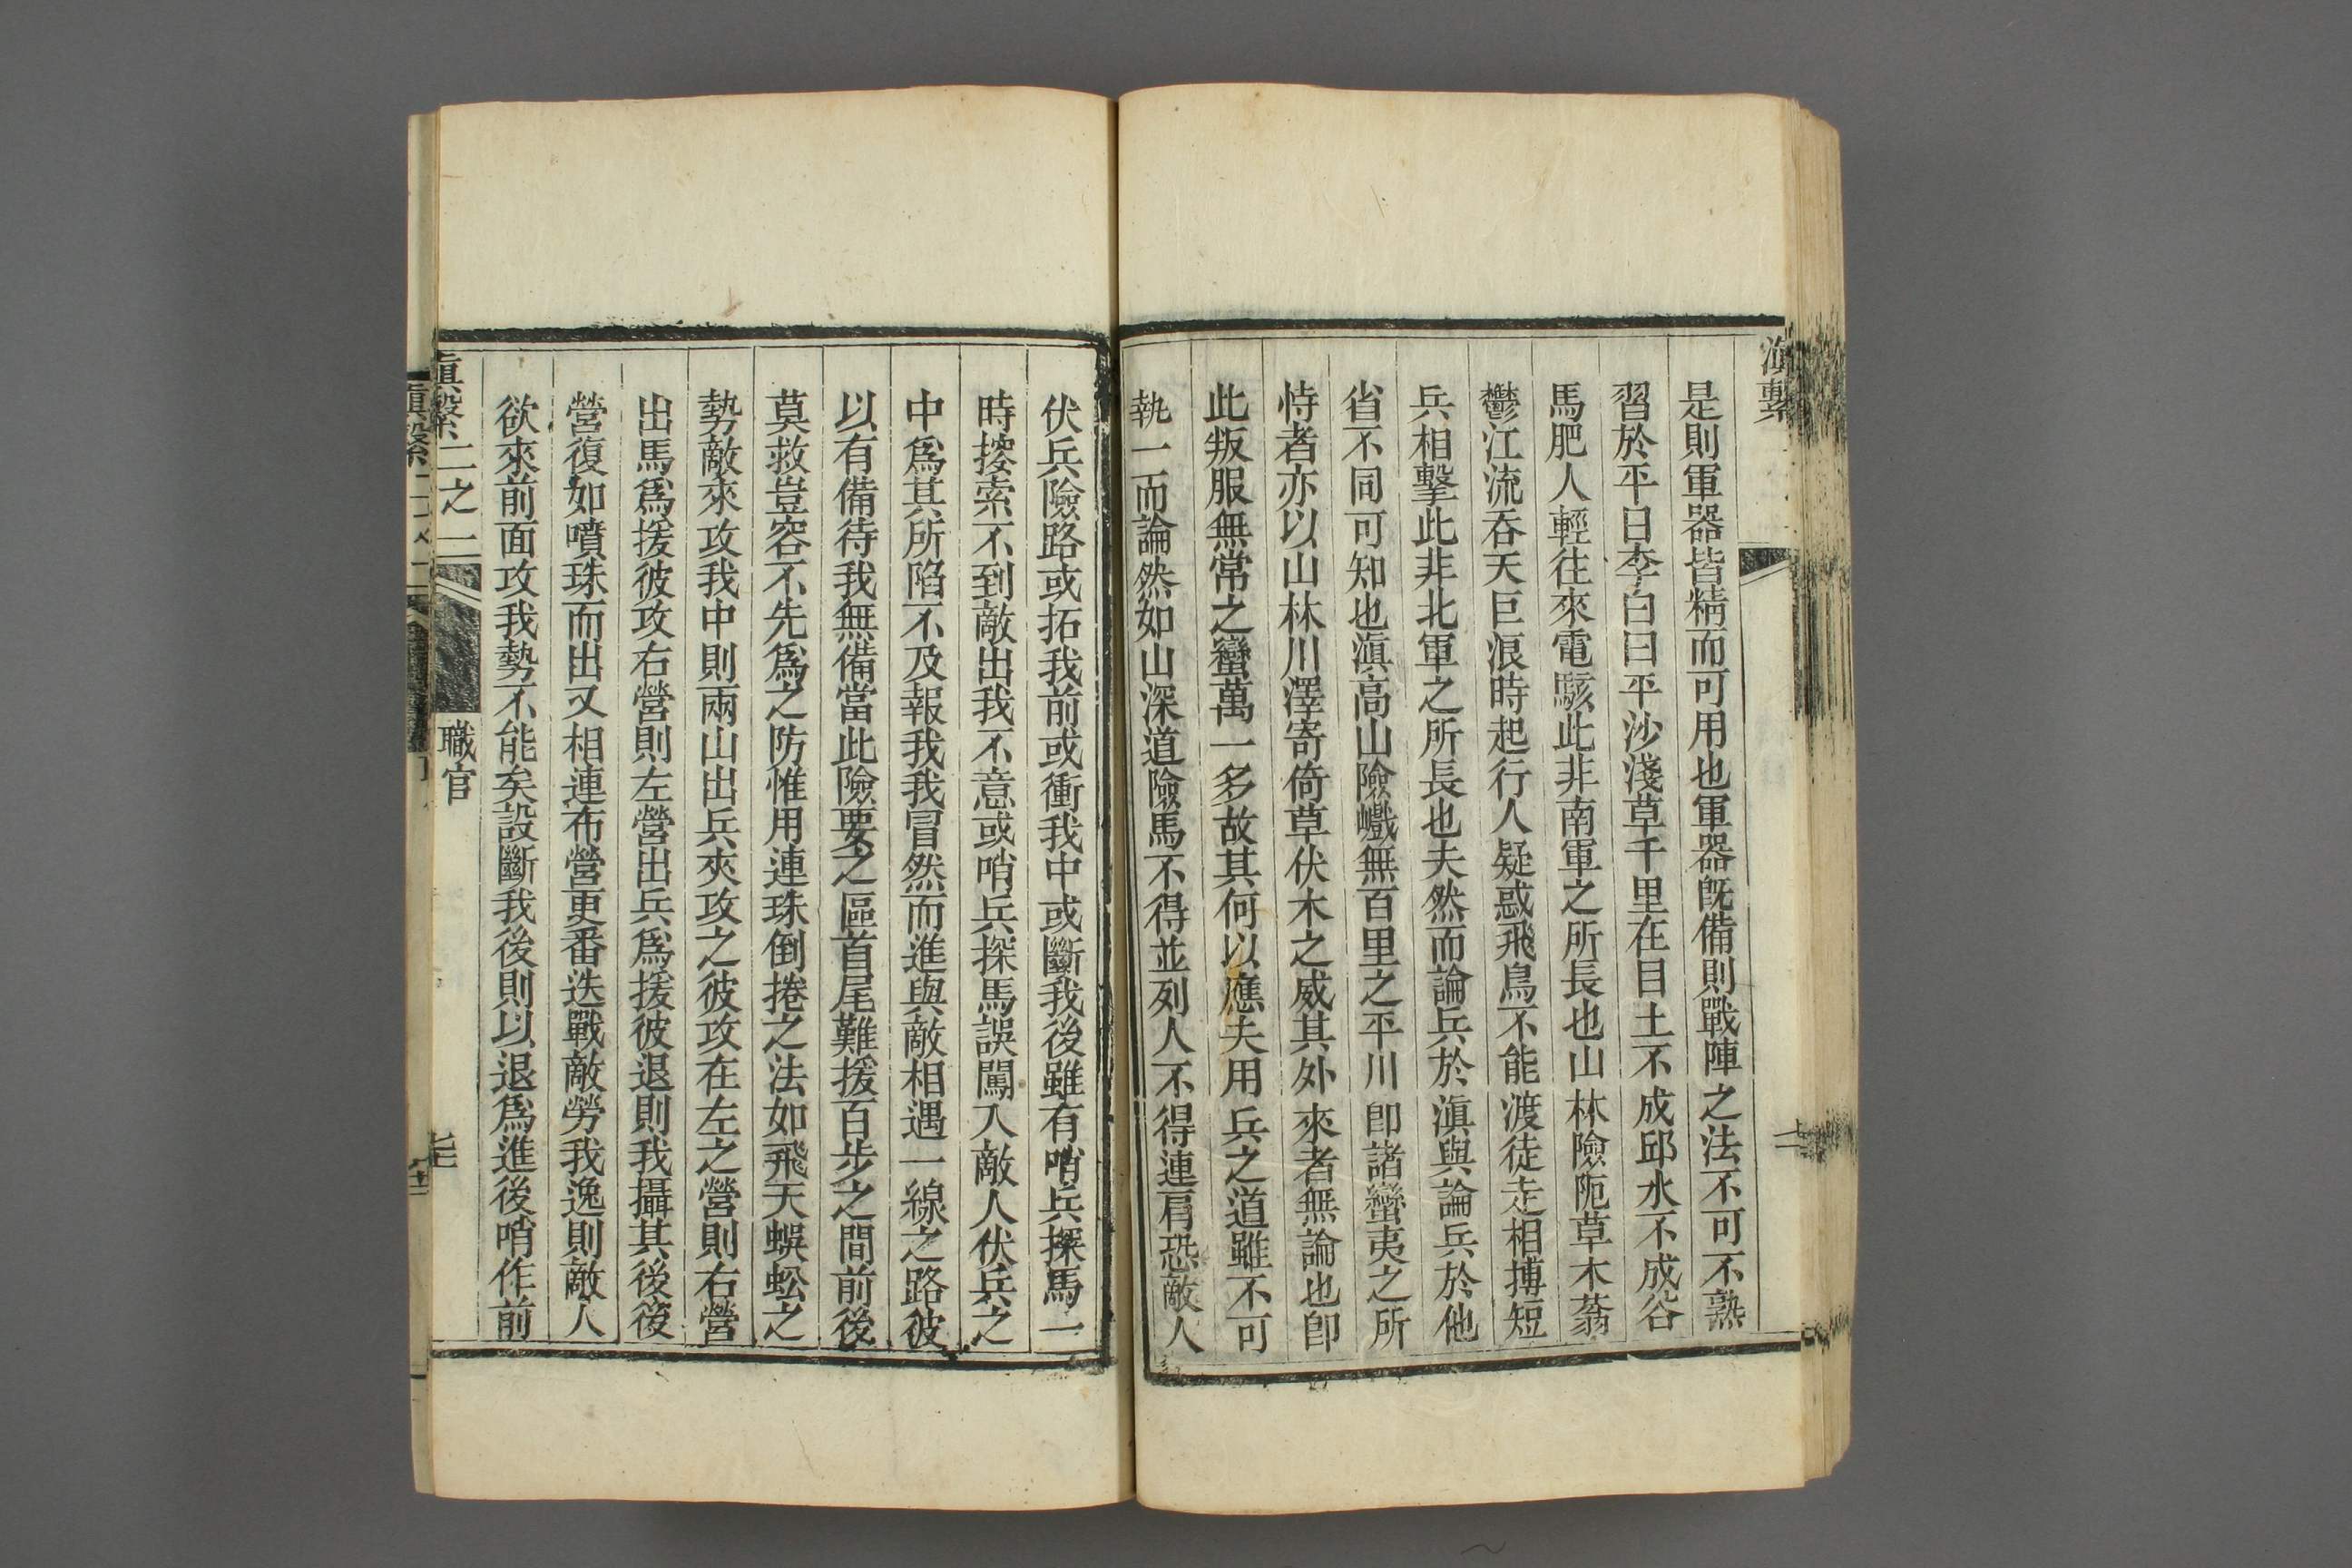 滇繫
是則軍器皆精而可用也軍器旣備則戰陣之法不可不熟
習於平日李白曰平沙淺草千里在目土不成邱水不成谷
馬肥人輕往來電駭此非南軍之所長也山林險阨草木蓊
鬱江流吞天巨浪時起行人疑惑飛鳥不能渡徒走相搏短
兵相擊此非北軍之所長也夫然而論兵於滇與論兵於他
省不同可知也滇高山險巇無百里之平川卽諸蠻夷之所
恃者亦以山林川澤寄倚草伏木之威其外來者無論也卽
此叛服無常之蠻萬一多故其何以應夫用兵之道雖不可
執一而論然如山深道險馬不得並列人不得連肩恐敵人
伏兵險路或拓我前或衝我中或斷我後雖有哨兵探馬一
時搜索不到敵出我不意或哨兵探馬誤闖入敵人伏兵之
中爲其所陷不及報我我冒然而進與敵相遇一線之路彼
以有備待我無備當此險要之區首尾難援百步之間前後
莫救豈容不先爲之防惟用連珠倒捲之法如飛天蜈蚣之
勢敵來攻我中則兩山出兵夾攻之彼攻在左之營則右營
出馬爲援彼攻右營則左營出兵爲援彼退則我攝其後後
營復如噴珠而出又相連布營更番迭戰敵勞我逸則敵人
欲來前面攻我勢不能矣設斷我後則以退爲進後哨作前
滇繫二之二 職官